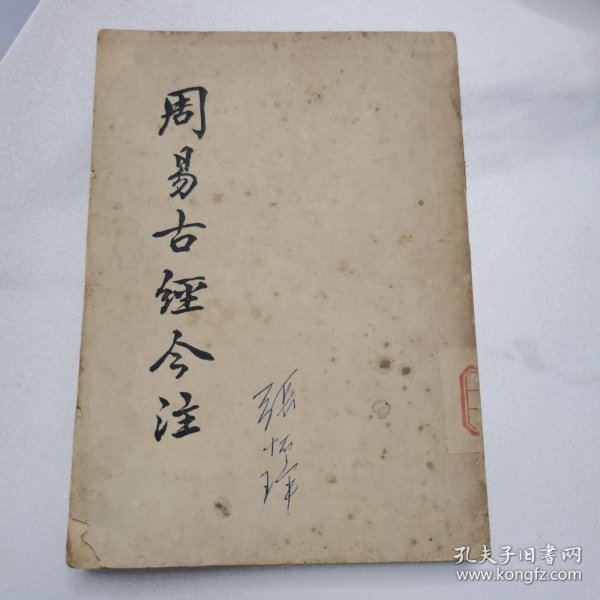 周易古經今注
張怀瑋
孔夫子旧書网
www.kongfz.com